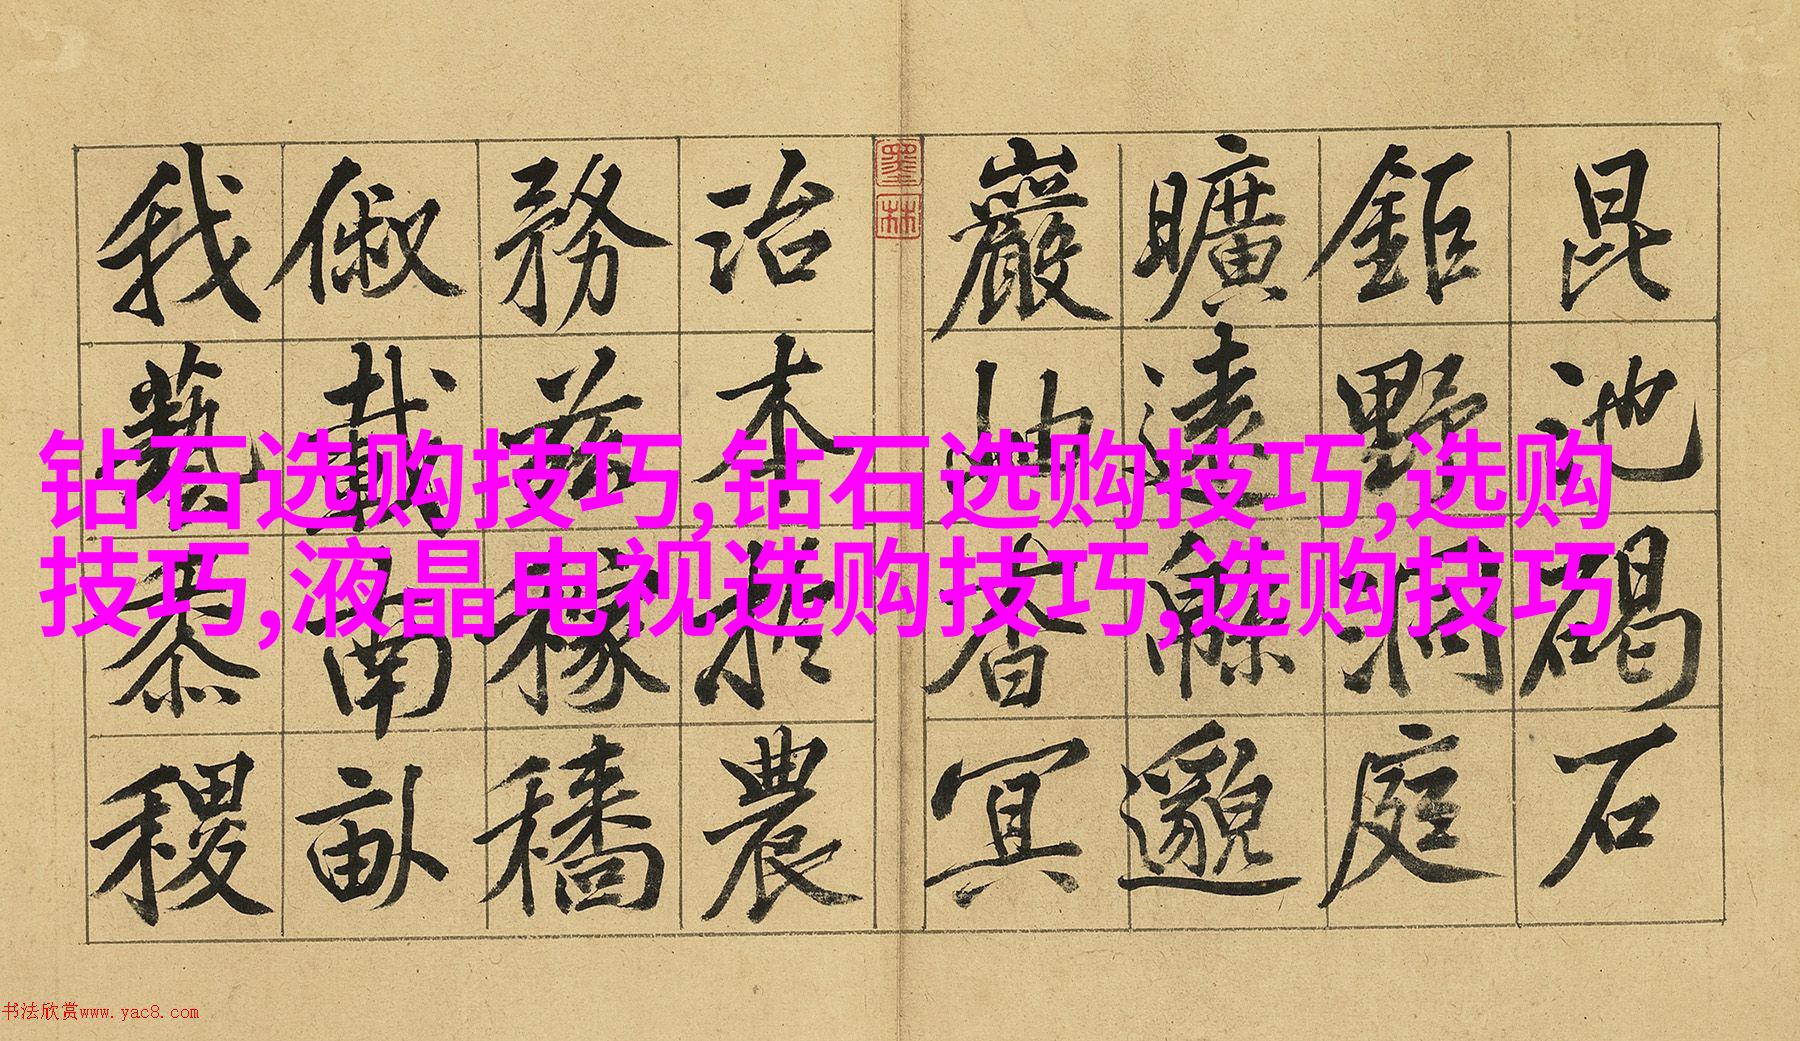 昆池碣石
鉅野洞庭
曠遠緜邈
巖岫杳冥
墨林
治本於農
務茲稼穡
俶載南畝
我藝黍稷
钻石选购技巧,钻石选购技巧,选购
技巧,液晶电视选购技巧,选购技巧
书法欣赏www.yac8.com